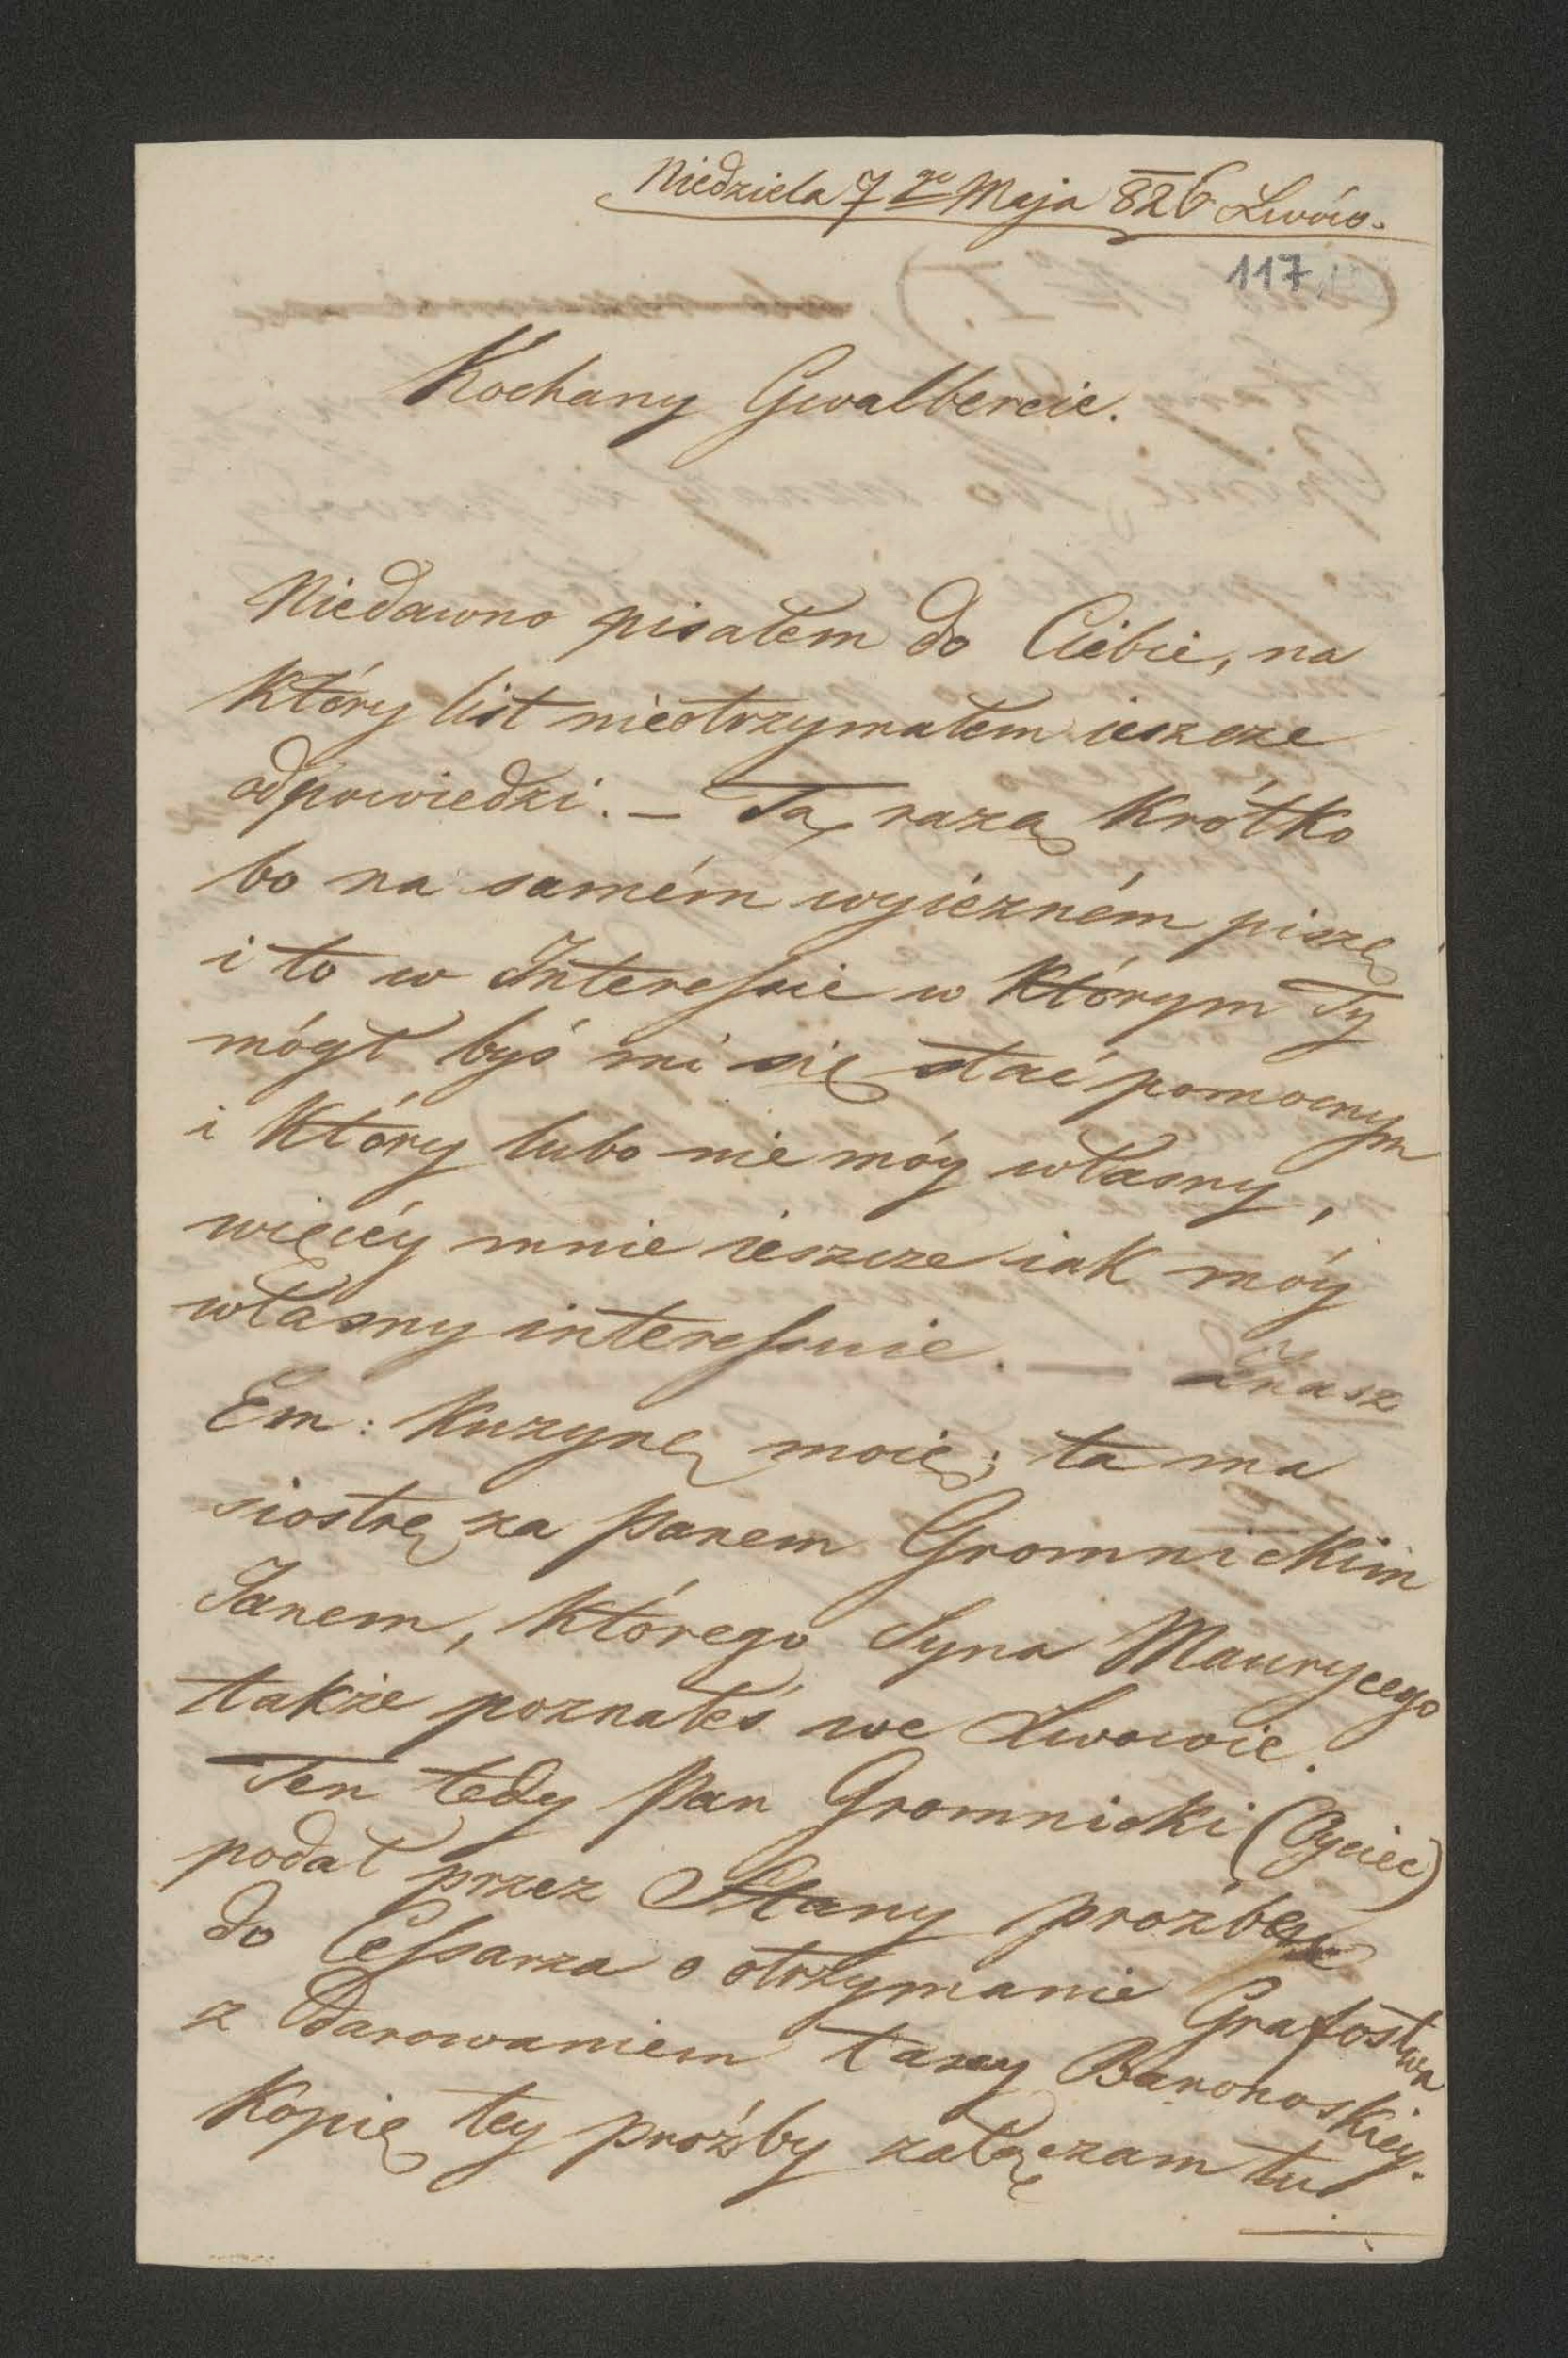 Niedziela 7go Maja 826 Lwów.
117
Kochany Gwalbercie.
Niedawno pisałem do Ciebie, na
który list nieotrzymałem ieszcze
odpowiedzi. — Tą razą krótko
bo na samém wyiezném piszę
i to w Interessie w którym Ty
mógł byś mi się stać pomocnym
i który lubo nie móy własny,
więcéy mnie ieszcze iak móy
własny interessuie. — Znasz
Em: Kuzynę moię; ta ma
siostrę za Panem Gromnickim
Janem, którego Syna Maurycego
także poznałeś we Lwowie.
Ten tedy Pan Gromnicki (Oyciec)
podał przez Stany proźbę
do Cessarza o otrzymanie Grafostwa
z Darowaniem taxy Baronoskiey.
Kopię tey proźby załączam tu